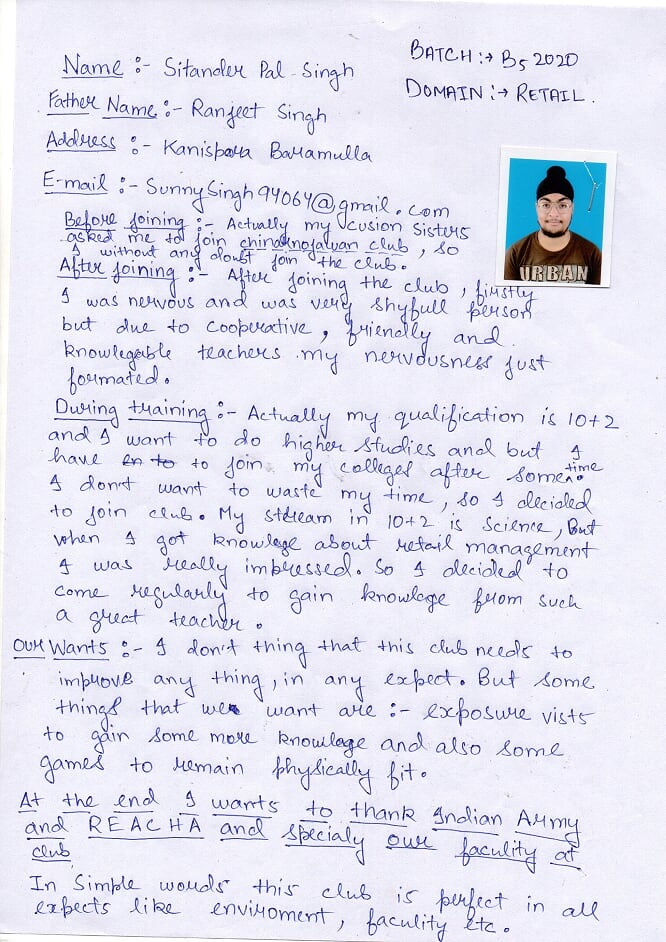 BATCH :→ B5 2020
DOMAIN :→ RETAIL.
Name :- Sitander Pal Singh
Father Name :- Ranjeet Singh
Address :- Kanispora Baramulla
E-mail :- SunnySingh94064@gmail.com
Before joining :- Actually my cusion sisters
asked me to join chinar nojawan club, so
I without any doubt join the club.
After joining :- After joining the club, firstly
I was nervous and was very shyfull person
but due to cooperative, friendly and
knowlegable teachers my nervousness just
formated.
During training :- Actually my qualification is 10+2
and I want to do higher studies and but I
have to join my colleges after sometime.
I don't want to waste my time, so I decided
to join club. My stream in 10+2 is Science, But
when I got knowlege about retail management
I was really impressed. So I decided to
come regularly to gain knowlege from such
a great teacher.
Our Wants :- I don't thing that this club needs to
improve any thing, in any expect. But some
things that we want are :- exposure vists
to gain some more knowlage and also some
games to remain physically fit.
At the end I wants to thank Indian Army
and REACHA and specialy our faculity at
club
In Simple words this club is perfect in all
expects like enviroment, faculity etc.
URBAN